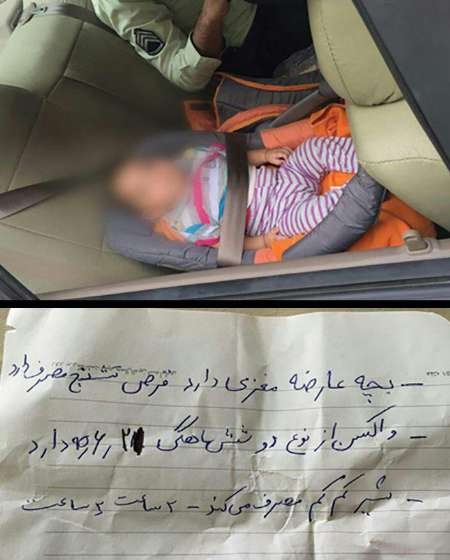 - بچه عارضه مغزی دارد قرص تشنج مصرف دارد
- واکسن از نوع دو شش ماهگی دارد
- شیر کم کم مصرف می کند - ۲ ساعت ۲ ساعت